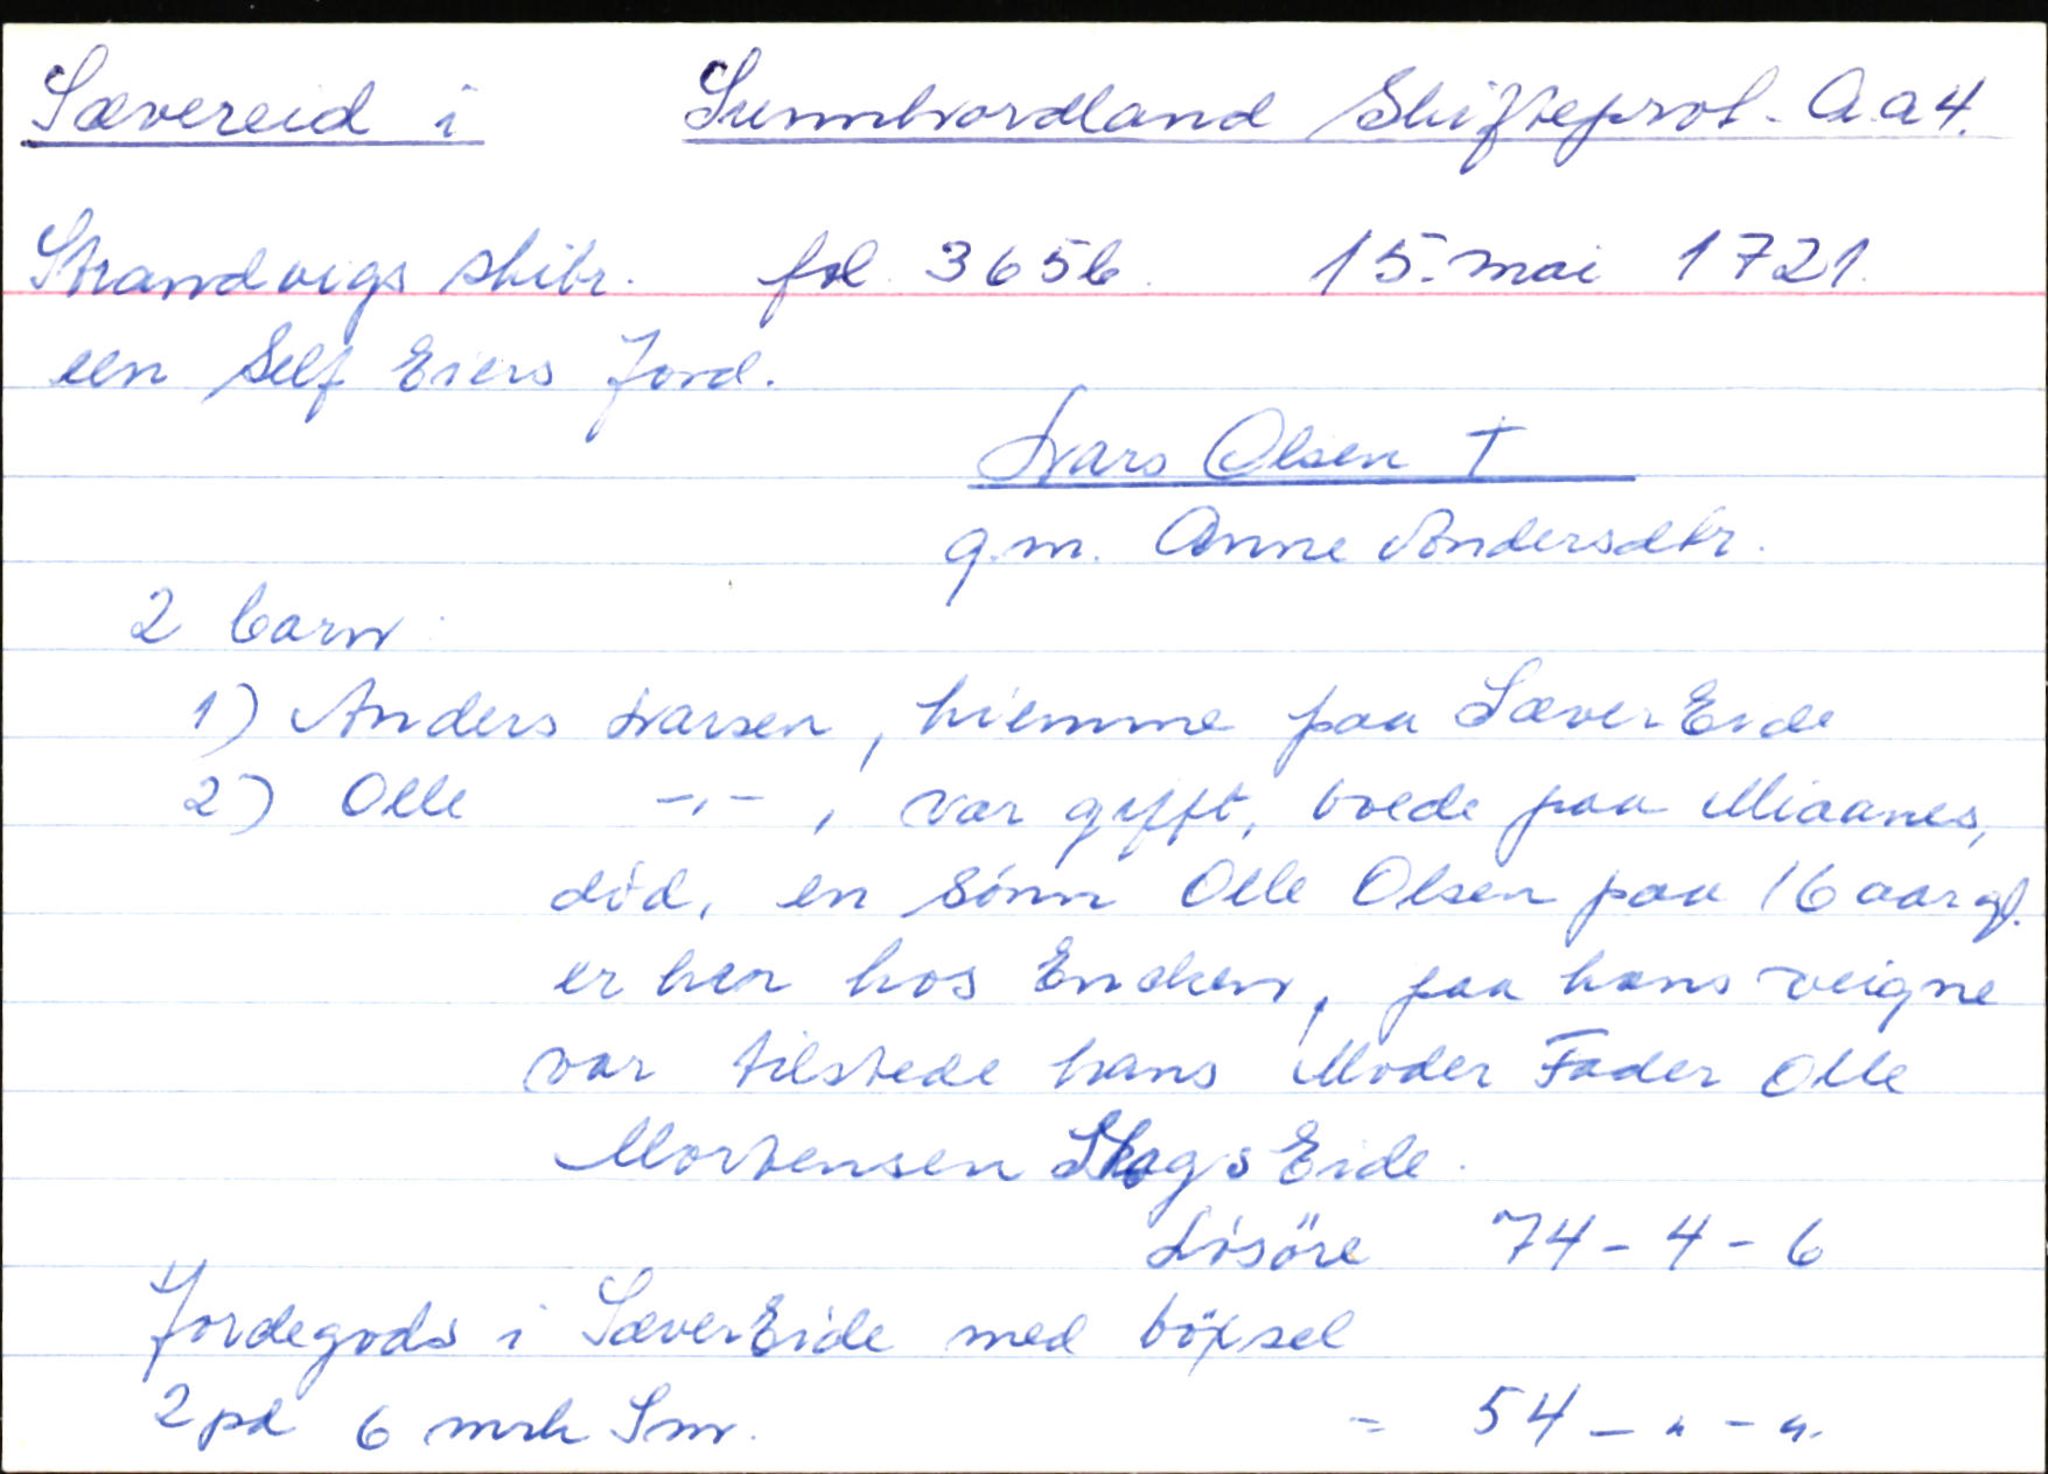 Sævereid i Sunnhordland Skifteprot. A.a 4.
Strandvigs skibr. fol. 365b. 15. mai 1721.
een Self Eiers Jord.
Ivars Olsen †
g.m. Anne Andersdtr.
2 barn:
1) Anders Ivarsen, hiemme paa SæverEide
2) Olle -"-, var gifft, boede paa Miaanes,
död, en Sönn Olle Olsen paa 16 aar gl.
er her hos Encken, paa hans veigne
var tilstede hans Moder Fader Olle
Mortensen SkogsEide.
Lösöre 74 - 4 - 6
Jordegods i SæverEide med böxsel
2 pd 6 mrk Sm. = 54 - " - ".